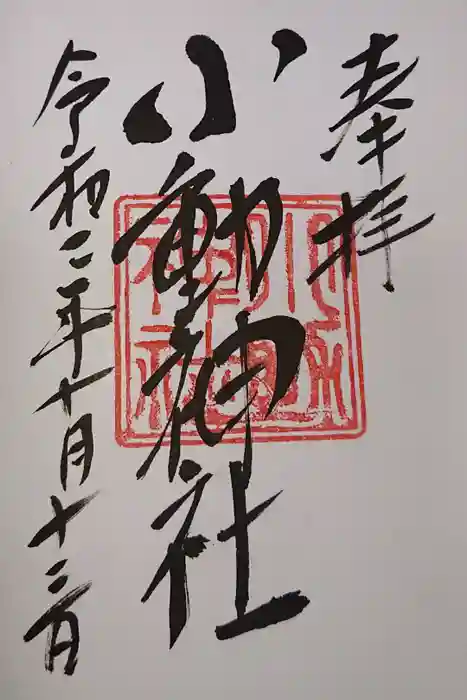 奉拝
小動神社
令和二年十月十二日